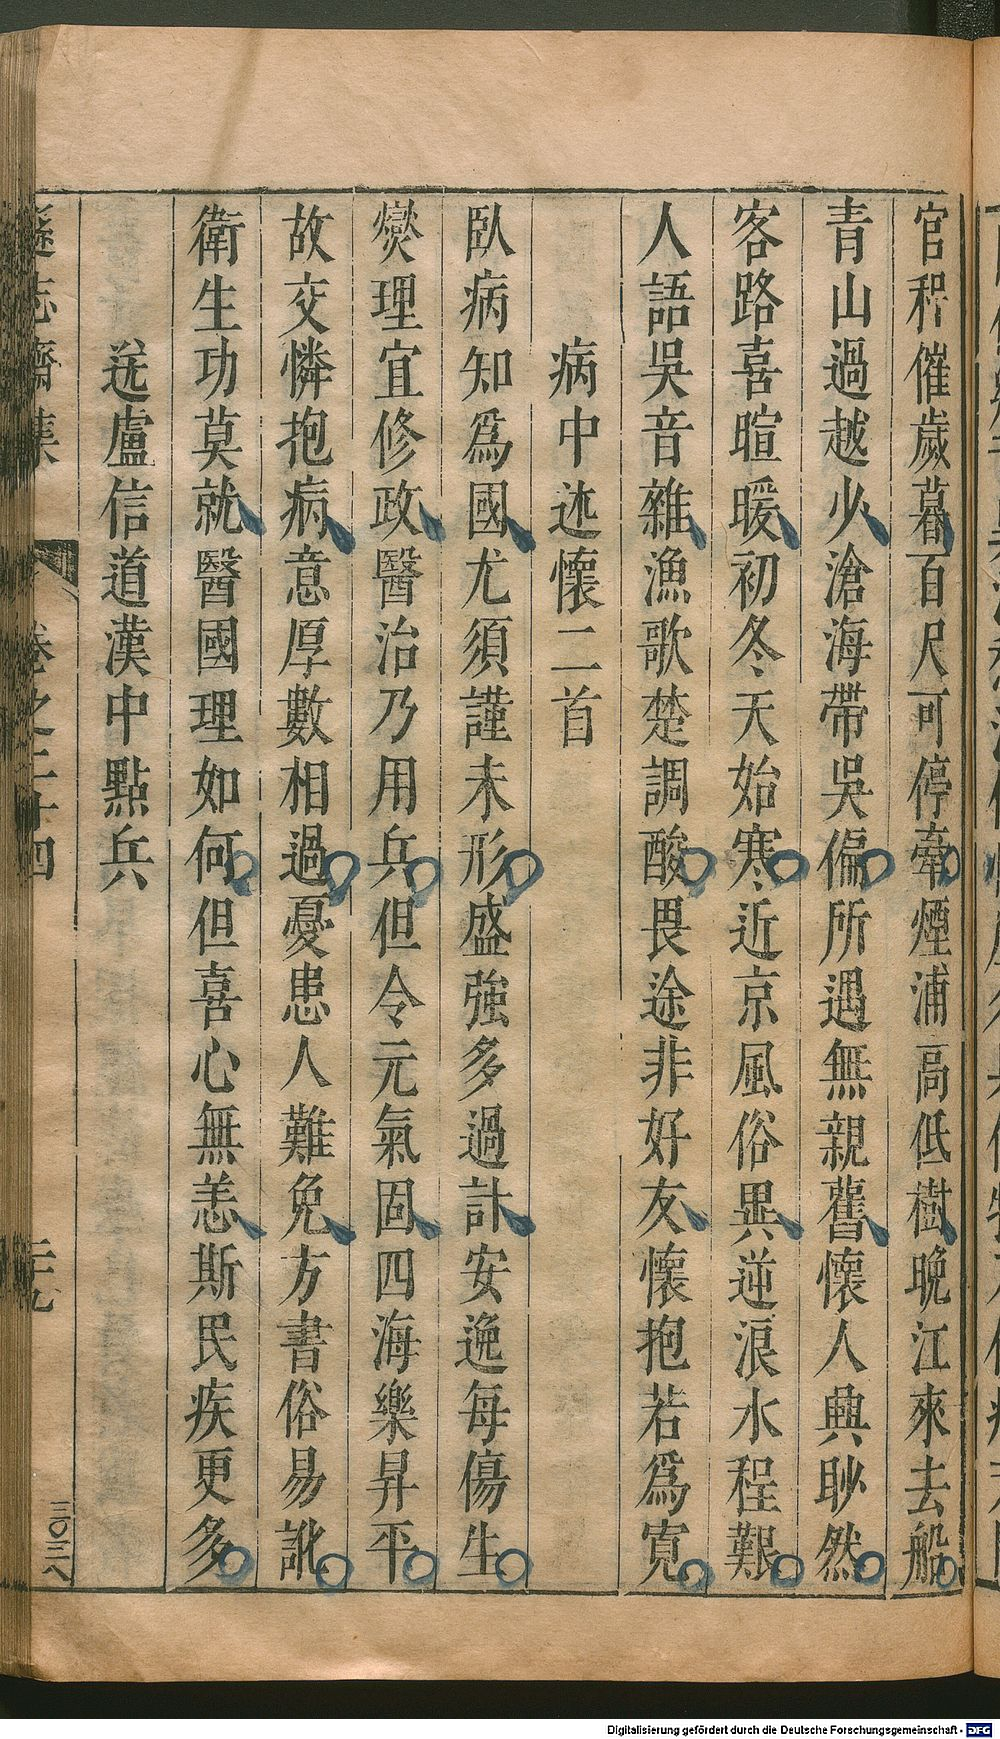 官程催歲暮百尺可停牽煙浦高低樹晚江來去船
青山過越少滄海帶吳偏所遇無親舊懷人興眇然
客路喜暄暖初冬天始寒近京風俗異逆浪水程艱
人語吳音雜漁歌楚調酸畏途非好友懷抱若為寬
病中述懷二首
臥病知為國尤須謹未形盛強多過計安逸每傷生
爕理宜修政醫治乃用兵但令元氣固四海樂昇平
故交憐抱病意厚數相過憂患人難免方書俗易訛
衛生功莫就醫國理如何但喜心無恙斯民疾更多
送盧信道漢中點兵
遜志齋集 卷之二十四 二十九
三〇二八
Digitalisierung gefördert durch die Deutsche Forschungsgemeinschaft - DFG